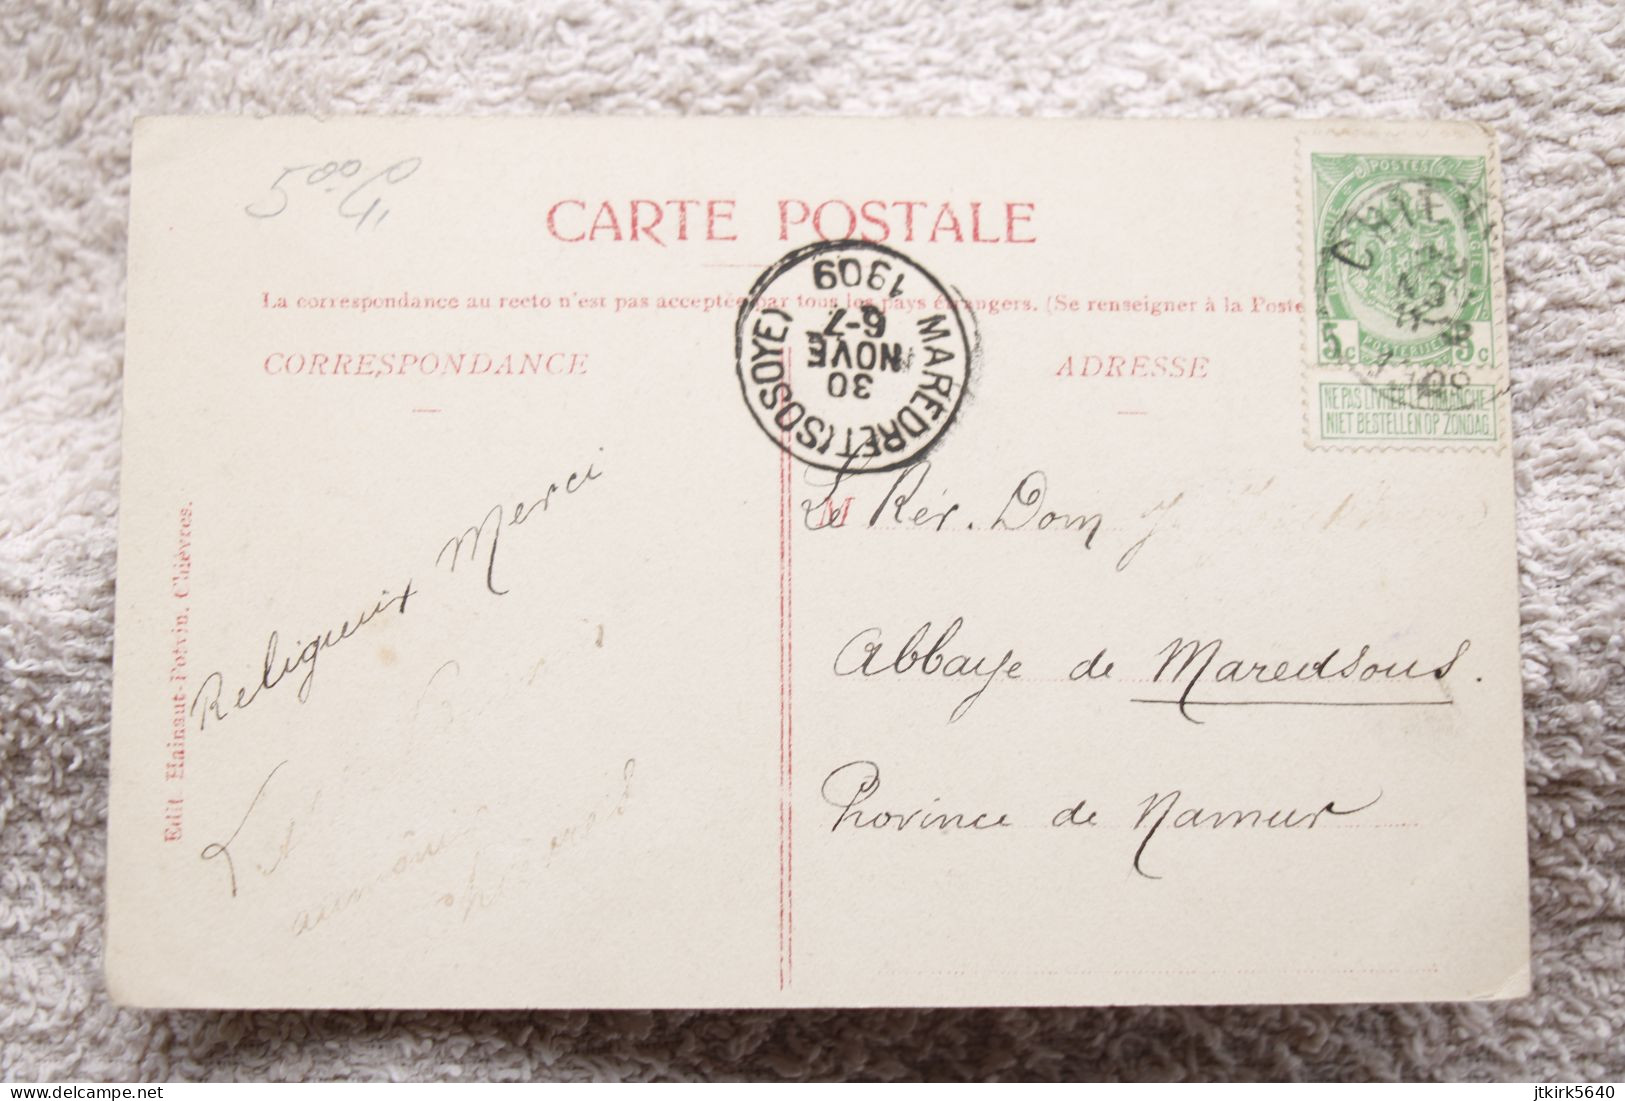 5.00
CARTE POSTALE
La correspondance au recto n'est pas acceptée par tous les pays étrangers. (Se renseigner à la Poste
CORRESPONDANCE
ADRESSE
MAREDRET (SOSOYE)
30
NOVE
6-7
1909
POSTES
CHIEV
5c 5c
POSTERIJEN
NE PAS LIVRER LE DIMANCHE
NIET BESTELLEN OP ZONDAG
Religieux Merci
M
Le Rév. Dom
Abbaye de Maredsous.
Province de Namur
Edit. Hainaut-Potvin. Chièvres.
delcampe.net
jtkirk5640